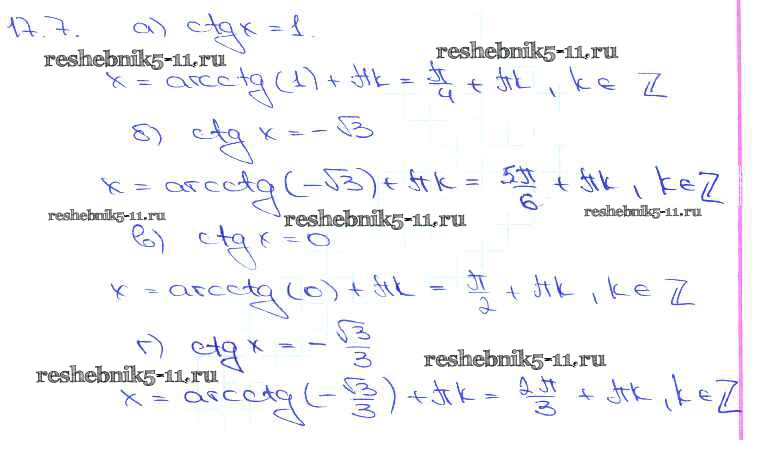 17.7. а) ctg x = 1.
reshebnik5-11.ru reshebnik5-11.ru
x = arcctg(1) + πk = π/4 + πk, k ∈ ℤ
б) ctg x = -√3
x = arcctg(-√3) + πk = 5π/6 + πk, k ∈ ℤ
reshebnik5-11.ru reshebnik5-11.ru reshebnik5-11.ru
в) ctg x = 0
x = arcctg(0) + πk = π/2 + πk, k ∈ ℤ
г) ctg x = -√3/3
reshebnik5-11.ru reshebnik5-11.ru
x = arcctg(-√3/3) + πk = 2π/3 + πk, k ∈ ℤ